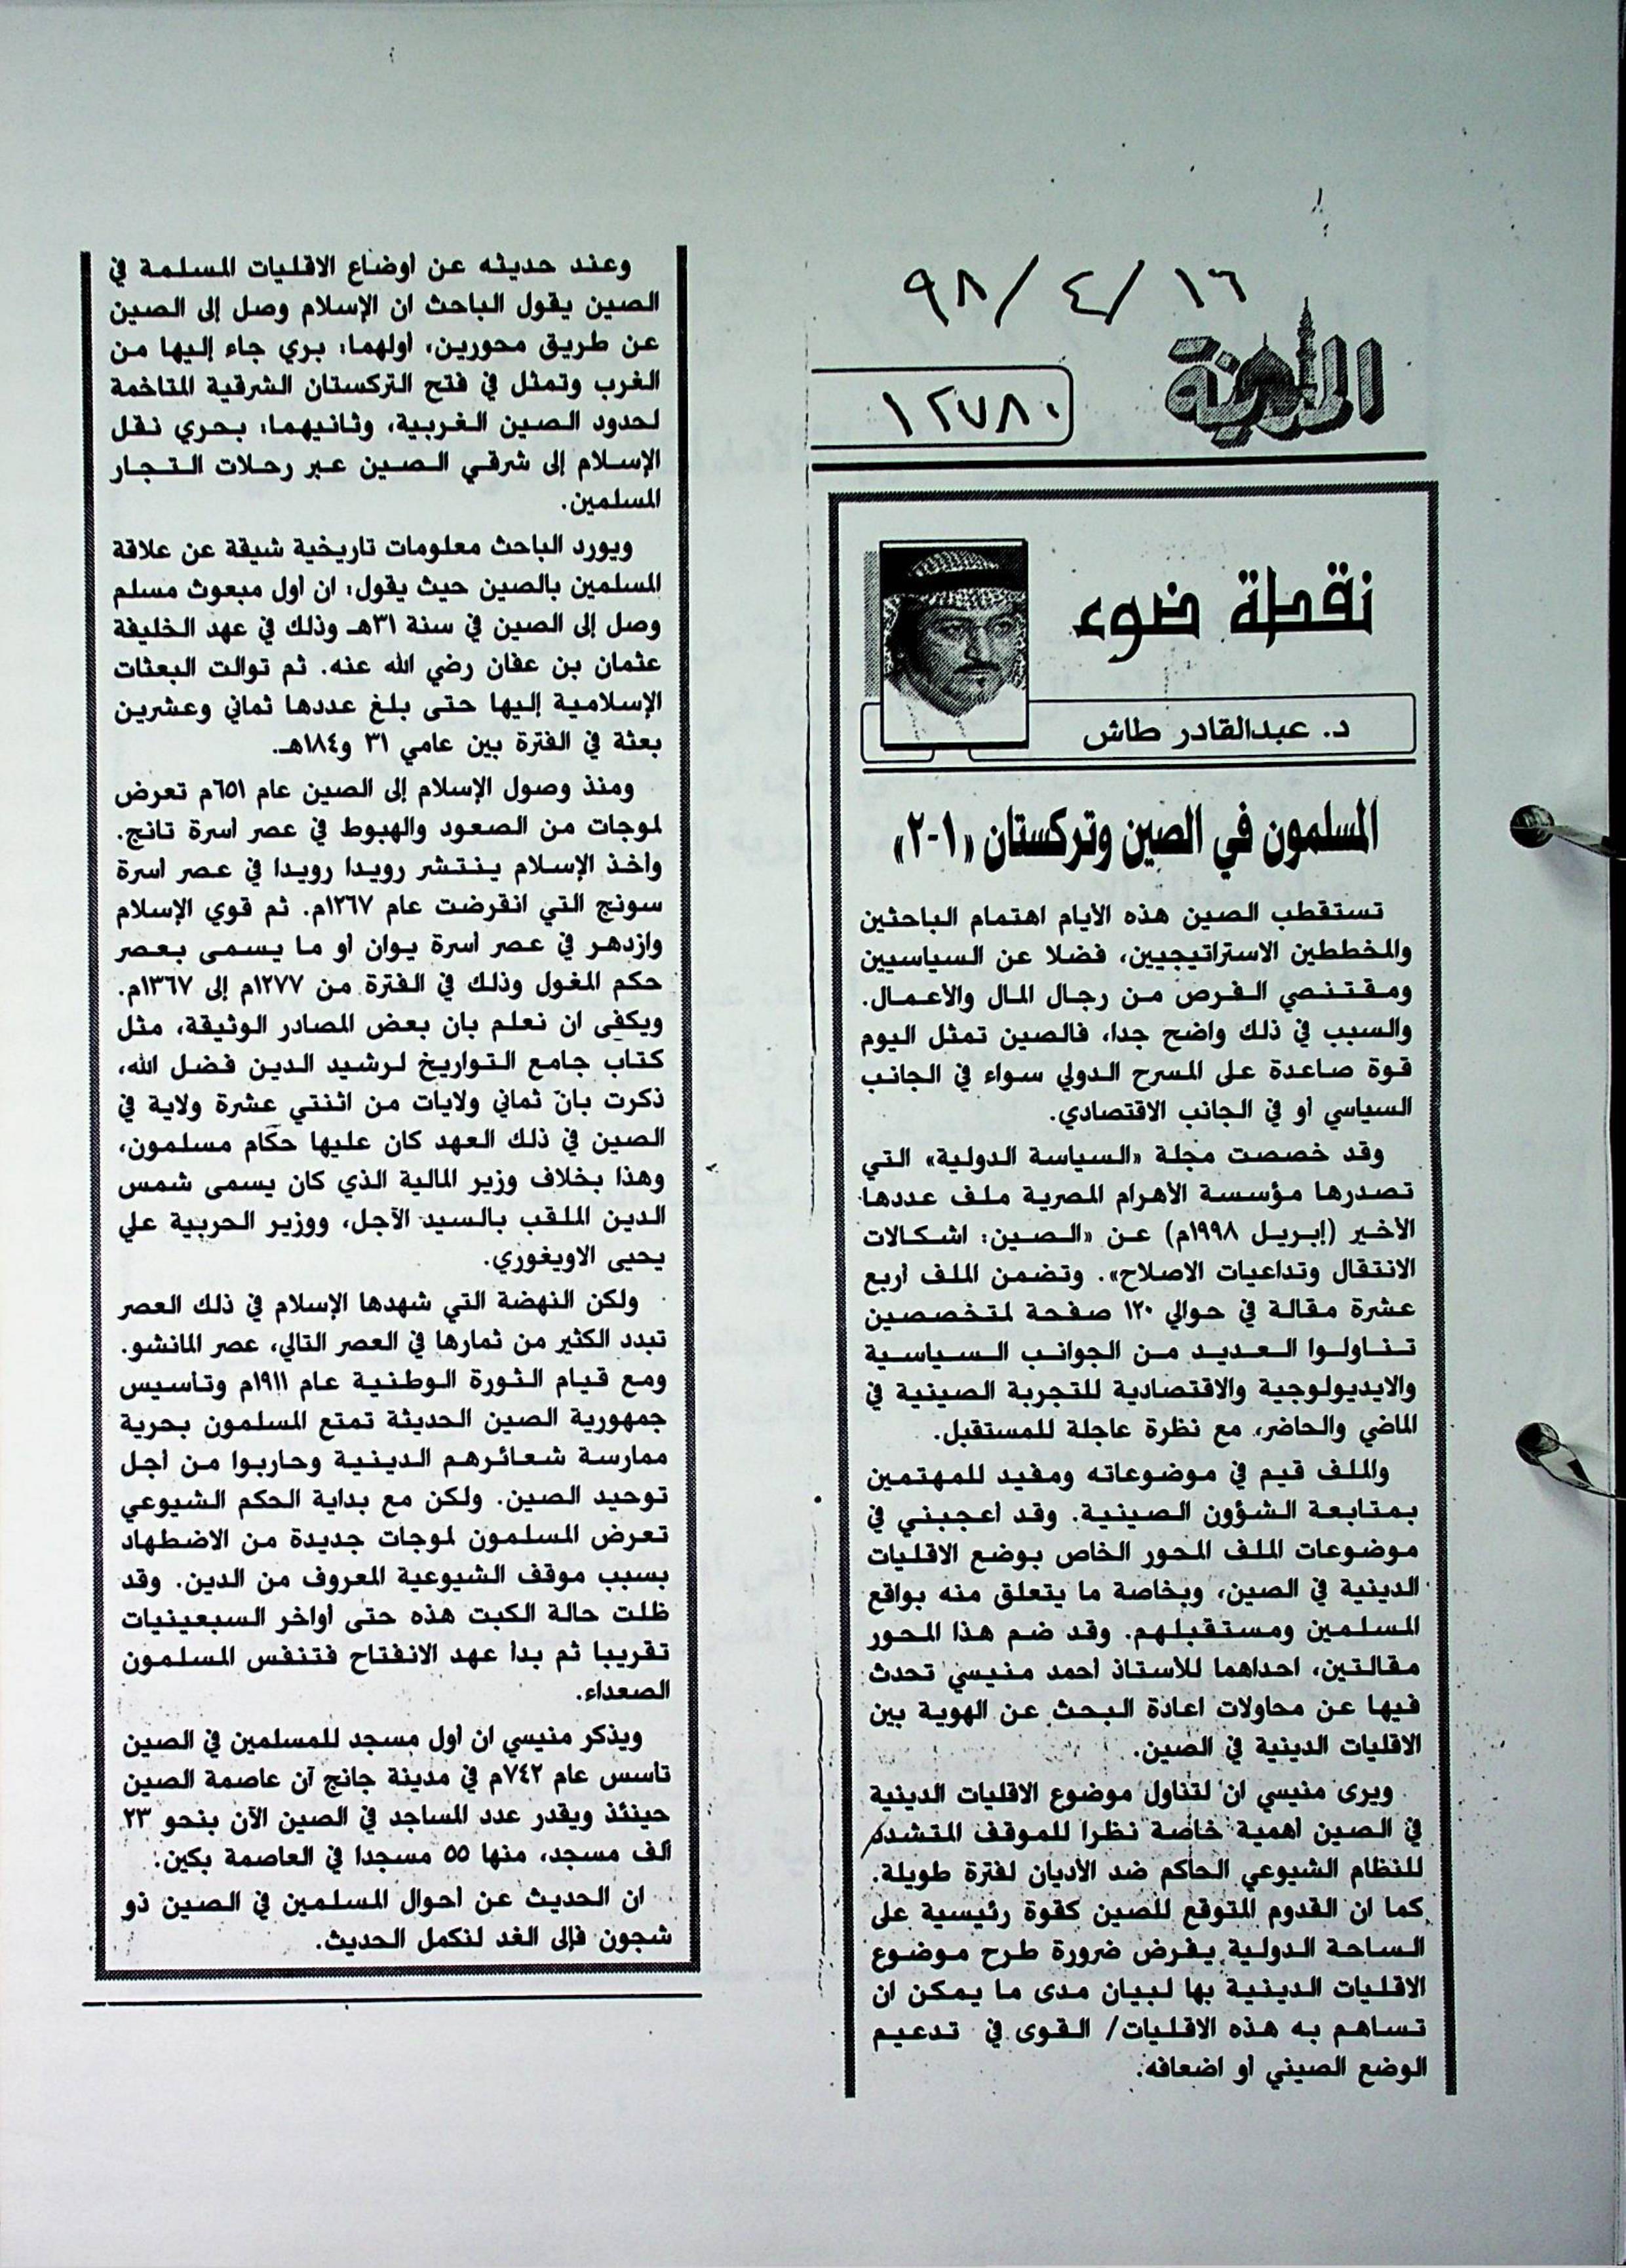 ١٦/٤/٩٨
المدينة
١٢٧٨٠
نقطة ضوء
د. عبدالقادر طاش
المسلمون في الصين وتركستان «١-٢»
تستقطب الصين هذه الأيام اهتمام الباحثين
والمخططين الاستراتيجيين، فضلا عن السياسيين
ومقتنصي الفرص من رجال المال والأعمال.
والسبب في ذلك واضح جدا، فالصين تمثل اليوم
قوة صاعدة على المسرح الدولي سواء في الجانب
السياسي أو في الجانب الاقتصادي.
وقد خصصت مجلة «السياسة الدولية» التي
تصدرها مؤسسة الأهرام المصرية ملف عددها
الأخير (إبريل ١٩٩٨م) عن «الصين: اشكالات
الانتقال وتداعيات الاصلاح». وتضمن الملف أربع
عشرة مقالة في حوالي ١٢٠ صفحة لمتخصصين
تناولوا العديد من الجوانب السياسية
والايديولوجية والاقتصادية للتجربة الصينية في
الماضي والحاضر، مع نظرة عاجلة للمستقبل.
والملف قيم في موضوعاته ومفيد للمهتمين
بمتابعة الشؤون الصينية. وقد أعجبني في
موضوعات الملف المحور الخاص بوضع الاقليات
الدينية في الصين، وبخاصة ما يتعلق منه بواقع
المسلمين ومستقبلهم. وقد ضم هذا المحور
مقالتين، احداهما للأستاذ أحمد منيسي تحدث
فيها عن محاولات اعادة البحث عن الهوية بين
الاقليات الدينية في الصين.
ويرى منيسي ان لتناول موضوع الاقليات الدينية
في الصين أهمية خاصة نظرا للموقف المتشدد
للنظام الشيوعي الحاكم ضد الأديان لفترة طويلة.
كما ان القدوم المتوقع للصين كقوة رئيسية على
الساحة الدولية يفرض ضرورة طرح موضوع
الاقليات الدينية بها لبيان مدى ما يمكن ان
تساهم به هذه الاقليات/ القوى في تدعيم
الوضع الصيني أو اضعافه.
وعند حديثه عن أوضاع الاقليات المسلمة في
الصين يقول الباحث ان الإسلام وصل إلى الصين
عن طريق محورين، أولهما: بري جاء إليها من
الغرب وتمثل في فتح التركستان الشرقية المتاخمة
لحدود الصين الغربية، وثانيهما: بحري نقل
الإسلام إلى شرقي الصين عبر رحلات التجار
المسلمين.
ويورد الباحث معلومات تاريخية شيقة عن علاقة
المسلمين بالصين حيث يقول: ان أول مبعوث مسلم
وصل إلى الصين في سنة ٣١هـ وذلك في عهد الخليفة
عثمان بن عفان رضي الله عنه. ثم توالت البعثات
الإسلامية إليها حتى بلغ عددها ثماني وعشرين
بعثة في الفترة بين عامي ٣١ و١٨٤هـ.
ومنذ وصول الإسلام إلى الصين عام ٦٥١م تعرض
لموجات من الصعود والهبوط في عصر أسرة تانج.
وأخذ الإسلام ينتشر رويدا رويدا في عصر أسرة
سونج التي انقرضت عام ١٢٦٧م. ثم قوي الإسلام
وازدهر في عصر أسرة يوان أو ما يسمى بعصر
حكم المغول وذلك في الفترة من ١٢٧٧م إلى ١٣٦٧م.
ويكفي ان نعلم بان بعض المصادر الوثيقة، مثل
كتاب جامع التواريخ لرشيد الدين فضل الله،
ذكرت بانّ ثماني ولايات من اثنتي عشرة ولاية في
الصين في ذلك العهد كان عليها حكّام مسلمون،
وهذا بخلاف وزير المالية الذي كان يسمى شمس
الدين الملقب بالسيد الآجل، ووزير الحربية علي
يحيى الاويغوري.
ولكن النهضة التي شهدها الإسلام في ذلك العصر
تبدد الكثير من ثمارها في العصر التالي، عصر المانشو.
ومع قيام الثورة الوطنية عام ١٩١١م وتأسيس
جمهورية الصين الحديثة تمتع المسلمون بحرية
ممارسة شعائرهم الدينية وحاربوا من أجل
توحيد الصين. ولكن مع بداية الحكم الشيوعي
تعرض المسلمون لموجات جديدة من الاضطهاد
بسبب موقف الشيوعية المعروف من الدين. وقد
ظلت حالة الكبت هذه حتى أواخر السبعينيات
تقريبا ثم بدأ عهد الانفتاح فتنفس المسلمون
الصعداء.
ويذكر منيسي ان أول مسجد للمسلمين في الصين
تأسس عام ٧٤٢م في مدينة جانج آن عاصمة الصين
حينئذ ويقدر عدد المساجد في الصين الآن بنحو ٢٣
ألف مسجد، منها ٥٥ مسجدا في العاصمة بكين.
ان الحديث عن أحوال المسلمين في الصين ذو
شجون فإلى الغد لنكمل الحديث.